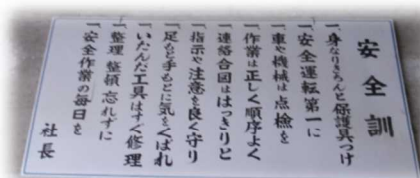 安全訓
一、身なりきちんと保護具つけ
一、安全運転第一に
一、車や機械は点検を
一、作業は正しく順序よく
一、連絡合図ははっきりと
一、指示や注意を良く守り
一、足もと手もとに気をくばれ
一、いたんだ工具はすぐ修理
一、整理整頓忘れずに
一、安全作業の毎日を
社長